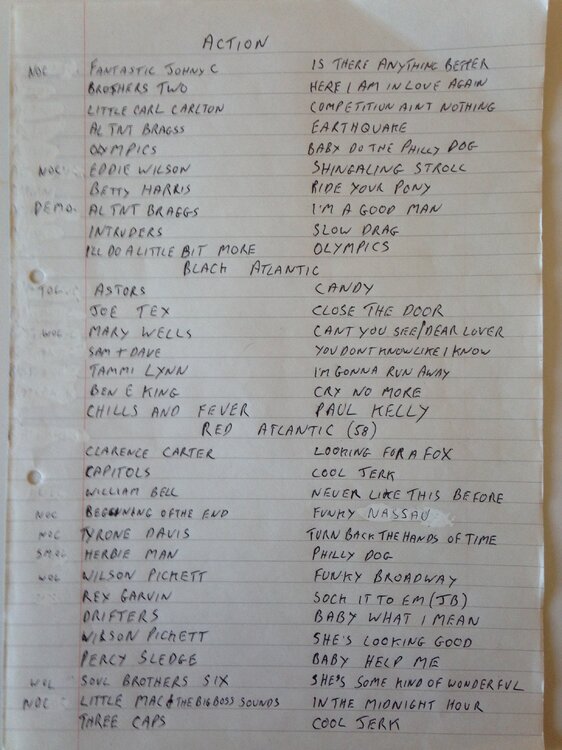 ACTION
NOC FANTASTIC JOHNY C IS THERE ANYTHING BETTER
BROTHERS TWO HERE I AM IN LOVE AGAIN
LITTLE CARL CARLTON COMPETITION AINT NOTHING
AL TNT BRAGGS EARTHQUAKE
OLYMPICS BABY DO THE PHILLY DOG
NOC EDDIE WILSON SHINGALING STROLL
BETTY HARRIS RIDE YOUR PONY
DEMO. AL TNT BRAGGS I'M A GOOD MAN
INTRUDERS SLOW DRAG
I'LL DO A LITTLE BIT MORE OLYMPICS
BLACK ATLANTIC
ASTORS CANDY
JOE TEX CLOSE THE DOOR
WOL MARY WELLS CANT YOU SEE/DEAR LOVER
SAM + DAVE YOU DONT KNOW LIKE I KNOW
TAMMI LYNN I'M GONNA RUN AWAY
BEN E KING CRY NO MORE
CHILLS AND FEVER PAUL KELLY
RED ATLANTIC (58)
CLARENCE CARTER LOOKING FOR A FOX
CAPITOLS COOL JERK
WILLIAM BELL NEVER LIKE THIS BEFORE
NOC BEGINNING OF THE END FUNKY NASSAU
NOC TYRONE DAVIS TURN BACK THE HANDS OF TIME
HERBIE MAN PHILLY DOG
WOL WILSON PICKETT FUNKY BROADWAY
REX GARVIN SOCK IT TO EM (JB)
DRIFTERS BABY WHAT I MEAN
WILSON PICKETT SHE'S LOOKING GOOD
PERCY SLEDGE BABY HELP ME
WOL SOUL BROTHERS SIX SHE'S SOME KIND OF WONDERFUL
NOC LITTLE MAC & THE BIG BOSS SOUNDS IN THE MIDNIGHT HOUR
THREE CAPS COOL JERK